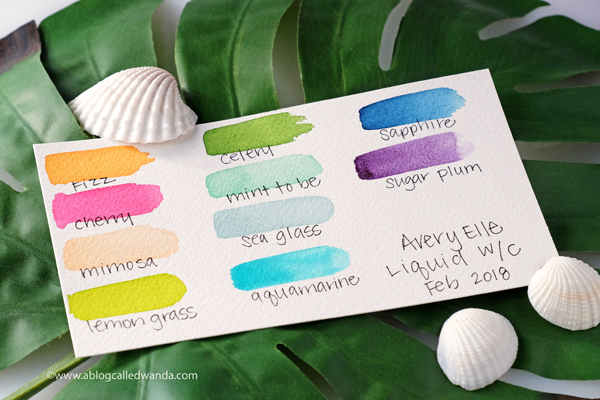 Fizz
cherry
mimosa
lemon grass
celery
mint to be
sea glass
aquamarine
sapphire
sugar plum
Avery Elle
Liquid W/C
Feb 2018
©www.ablogcalledwanda.com